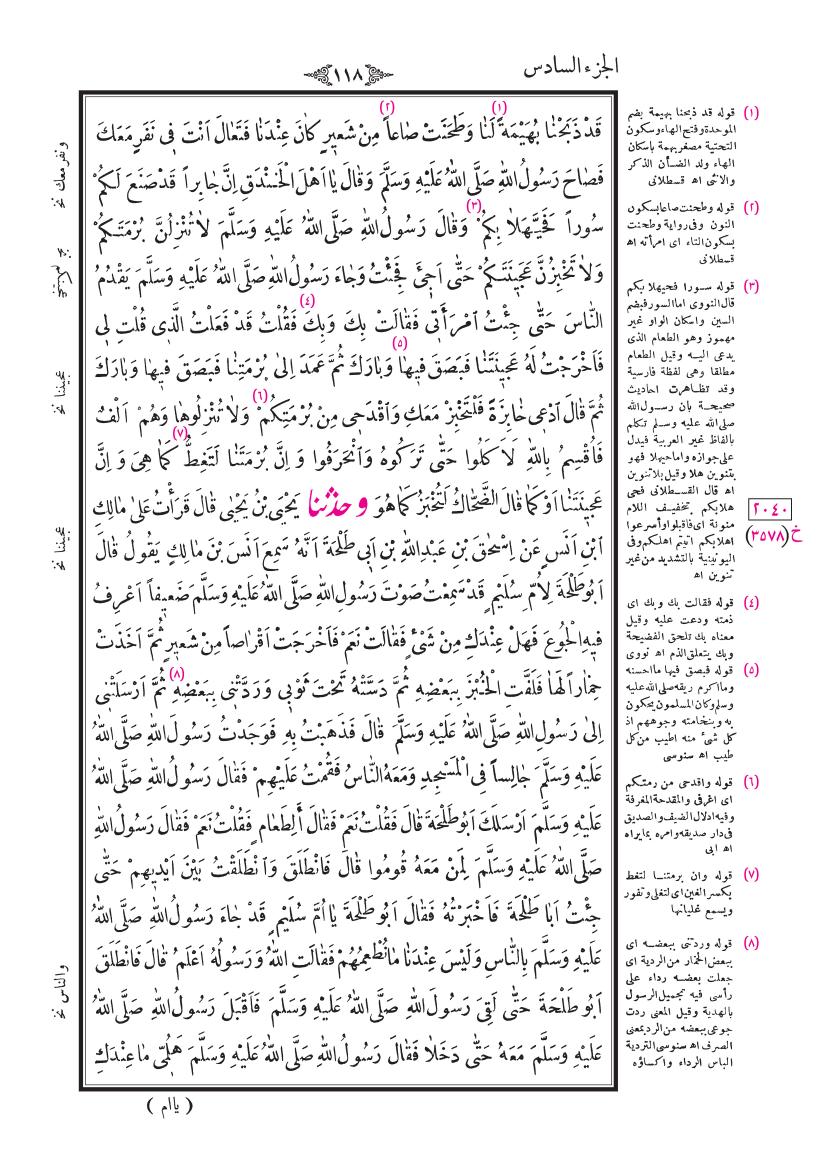 الجزء السادس
١١٨
قَدْ ذَبَحْنَا بُهَيْمَةً (١) لَنَا وَطَحَنَتْ صَاعاً (٢) مِنْ شَعِيرٍ كَانَ عِنْدَنَا فَتَعَالَ اَنْتَ فِى نَفَرٍ مَعَكَ
فَصَاحَ رَسُولُ اللّٰهِ صَلَّى اللّٰهُ عَلَيْهِ وَسَلَّمَ وَقَالَ يَا اَهْلَ الْخَنْدَقِ اِنَّ جَابِراً قَدْ صَنَعَ لَكُمْ
سُوراً فَحَيَّهَلاً بِكُمْ (٣) وَقَالَ رَسُولُ اللّٰهِ صَلَّى اللّٰهُ عَلَيْهِ وَسَلَّمَ لاَ تُنْزِلُنَّ بُرْمَتَكُمْ
وَلاَ تَخْبِزُنَّ عَجِينَتَكُمْ حَتَّى اَجِئَ فَجِئْتُ وَجَاءَ رَسُولُ اللّٰهِ صَلَّى اللّٰهُ عَلَيْهِ وَسَلَّمَ يَقْدُمُ
النَّاسَ حَتَّى جِئْتُ امْرَأَتِى فَقَالَتْ بِكَ وَبِكَ (٤) فَقُلْتُ قَدْ فَعَلْتُ الَّذِى قُلْتِ لِى
فَاَخْرَجْتُ لَهُ عَجِينَتَنَا فَبَصَقَ فِيهَا (٥) وَبَارَكَ ثُمَّ عَمَدَ اِلَى بُرْمَتِنَا فَبَصَقَ فِيهَا وَبَارَكَ
ثُمَّ قَالَ ادْعِى خَابِزَةً فَلْتَخْبِزْ مَعَكِ وَاقْدَحِى مِنْ بُرْمَتِكُمْ (٦) وَلاَ تُنْزِلُوهَا وَهُمْ اَلْفٌ
فَاُقْسِمُ بِاللّٰهِ لَاَكَلُوا حَتَّى تَرَكُوهُ وَانْحَرَفُوا وَ اِنَّ بُرْمَتَنَا لَتَغِطُّ (٧) كَمَا هِىَ وَ اِنَّ
عَجِينَتَنَا اَوْ كَمَا قَالَ الضَّحَّاكُ لَتُخْبَزُ كَمَا هُوَ وحدثنا يَحْيَى بْنُ يَحْيَى قَالَ قَرَأْتُ عَلَى مَالِكِ
ابْنِ اَنَسٍ عَنْ اِسْحٰقَ بْنِ عَبْدِ اللّٰهِ بْنِ اَبِى طَلْحَةَ اَنَّهُ سَمِعَ اَنَسَ بْنَ مَالِكٍ يَقُولُ قَالَ
اَبُو طَلْحَةَ لِاُمِّ سُلَيْمٍ قَدْ سَمِعْتُ صَوْتَ رَسُولِ اللّٰهِ صَلَّى اللّٰهُ عَلَيْهِ وَسَلَّمَ ضَعِيفاً اَعْرِفُ
فِيهِ الْجُوعَ فَهَلْ عِنْدَكِ مِنْ شَىْءٍ فَقَالَتْ نَعَمْ فَاَخْرَجَتْ اَقْرَاصاً مِنْ شَعِيرٍ ثُمَّ اَخَذَتْ
خِمَاراً لَهَا فَلَفَّتِ الْخُبْزَ بِبَعْضِهِ ثُمَّ دَسَّتْهُ تَحْتَ ثَوْبِى وَرَدَّتْنِى بِبَعْضِهِ (٨) ثُمَّ اَرْسَلَتْنِى
اِلَى رَسُولِ اللّٰهِ صَلَّى اللّٰهُ عَلَيْهِ وَسَلَّمَ قَالَ فَذَهَبْتُ بِهِ فَوَجَدْتُ رَسُولَ اللّٰهِ صَلَّى اللّٰهُ
عَلَيْهِ وَسَلَّمَ جَالِساً فِى الْمَسْجِدِ وَمَعَهُ النَّاسُ فَقُمْتُ عَلَيْهِمْ فَقَالَ رَسُولُ اللّٰهِ صَلَّى اللّٰهُ
عَلَيْهِ وَسَلَّمَ اَرْسَلَكَ اَبُو طَلْحَةَ قَالَ فَقُلْتُ نَعَمْ فَقَالَ أَلِطَعَامٍ فَقُلْتُ نَعَمْ فَقَالَ رَسُولُ اللّٰهِ
صَلَّى اللّٰهُ عَلَيْهِ وَسَلَّمَ لِمَنْ مَعَهُ قُومُوا قَالَ فَانْطَلَقَ وَانْطَلَقْتُ بَيْنَ اَيْدِيهِمْ حَتَّى
جِئْتُ اَبَا طَلْحَةَ فَاَخْبَرْتُهُ فَقَالَ اَبُو طَلْحَةَ يَا اُمَّ سُلَيْمٍ قَدْ جَاءَ رَسُولُ اللّٰهِ صَلَّى اللّٰهُ
عَلَيْهِ وَسَلَّمَ بِالنَّاسِ وَلَيْسَ عِنْدَنَا مَا نُطْعِمُهُمْ فَقَالَتِ اللّٰهُ وَرَسُولُهُ اَعْلَمُ قَالَ فَانْطَلَقَ
اَبُو طَلْحَةَ حَتَّى لَقِىَ رَسُولَ اللّٰهِ صَلَّى اللّٰهُ عَلَيْهِ وَسَلَّمَ فَاَقْبَلَ رَسُولُ اللّٰهِ صَلَّى اللّٰهُ
عَلَيْهِ وَسَلَّمَ مَعَهُ حَتَّى دَخَلاَ فَقَالَ رَسُولُ اللّٰهِ صَلَّى اللّٰهُ عَلَيْهِ وَسَلَّمَ هَلُمِّى مَا عِنْدَكِ
( يا ام )
(١) قوله قد ذبحنا بهيمة بضم
الموحدة وفتح الهاء وسكون
التحتية مصغر بهمة باسكان
الهاء ولد الضأن الذكر
والانثى اه قسطلانى
(٢) قوله وطحنت صاعا بسكون
النون وفى رواية وطحنت
بسكون التاء اى امرأته اه
قسطلانى
(٣) قوله سورا فحيهلا بكم
قال النووى اما السور فبضم
السين واسكان الواو غير
مهموز وهو الطعام الذى
يدعى اليه وقيل الطعام
مطلقا وهى لفظة فارسية
وقد تظاهرت احاديث
صحيحة بان رسول الله
صلى الله عليه وسلم تكلم
بالفاظ غير العربية فيدل
على جوازه واما حيهلا فهو
بتنوين هلا وقيل بلا تنوين
اه قال القسطلانى فحى
هلا بكم بتخفيف اللام
منونة اى فاقبلوا وأسرعوا
اهلا بكم اتيتم اهلكم وفى
اليونينية بالتشديد من غير
تنوين اه
(٤) قوله فقالت بك وبك اى
ذمته ودعت عليه وقيل
معناه بك تلحق الفضيحة
وبك يتعلق الذم اه نووى
(٥) قوله فبصق فيها ما احسنه
وما اكرم ريقه صلى الله عليه
وسلم وكان المسلمون يحكون
به وبنخامته وجوههم اذ
كل شىء منه اطيب من كل
طيب اه سنوسى
(٦) قوله واقدحى من رمتكم
اى اغرفى والمقدحة المغرفة
وفيه ادلال الضيف والصديق
فى دار صديقه وامره بما يراه
اه ابى
(٧) قوله وان برمتنا لتغط
بكسر الغين اى لتغلى وتفور
ويسمع غليانها
(٨) قوله وردتنى ببعضه اى
ببعض الخمار من الردية اى
جعلت بعضه رداء على
رأسى فيه تجميل الرسول
بالهدية وقيل المعنى ردت
جوعى ببعضه من الرد بمعنى
الصرف اه سنوسى التردية
الباس الرداء واكساؤه
٢٠٤٠
خ (٣٥٧٨)
ونفر معك نخ
عجينتنا نخ
عجينتنا نخ
والناس نخ